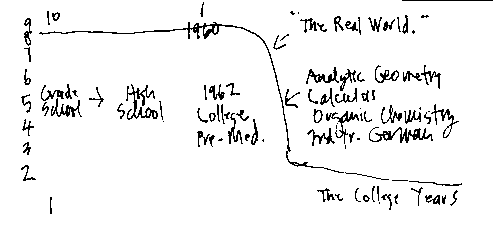 10
9
8
7
6
5
4
3
2
1
1960
"The Real World."
Grade School → High School
1962
College
Pre-Med.
Analytic Geometry
Calculus
Organic Chemistry
2nd Yr. German
The College Years